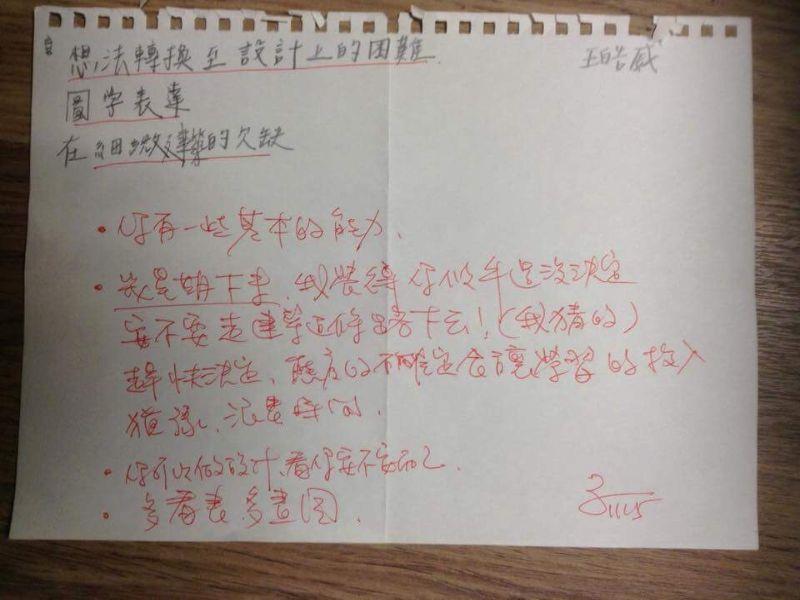 想法轉換至設計上的困難
王皓威
圖字表達
在細微建築的欠缺
• 你有一些基本的能力.
• 幾星期下來,我覺得你似乎還沒決定
要不要走建築這條路下去!(我猜的)
趕快決定,態度的不確定會讓學習的投入
猶豫、浪費時間.
• 你可以做設計,看你要不要而已.
• 多看書多畫圖.